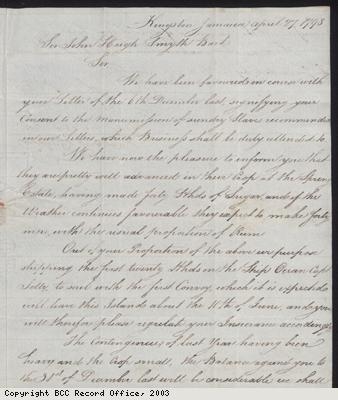 Kingston Jamaica April 27, 1798
Sir John Hugh Smyth Bart
Sir
We have been favoured in course with
your Letter of the 6th December last, signifying your
Consent to the Manumission of sundry Slaves recommended
in our Letters, which Business shall be duly attended to.
We have now the pleasure to inform you that
they are pretty well advanced in their Crop at the Spring
Estate, having made forty Hhds of Sugar, and if the
Weather continues favourable they expect to make forty
more, with the usual proportion of Rum
Out of your Proportion of the above we purpose
shipping the first twenty Hhds in the Ship Ocean Capt
to sail with the first Convoy, which it is expected
will leave this Island about the 10th of June, and you
will therefore please regulate your Insurance accordingly
The Contingencies of last Year having been
heavy and the Crop small, the Balance against you to
the 31st of December last will be considerable we shall
Copyright BCC Record Office, 2003